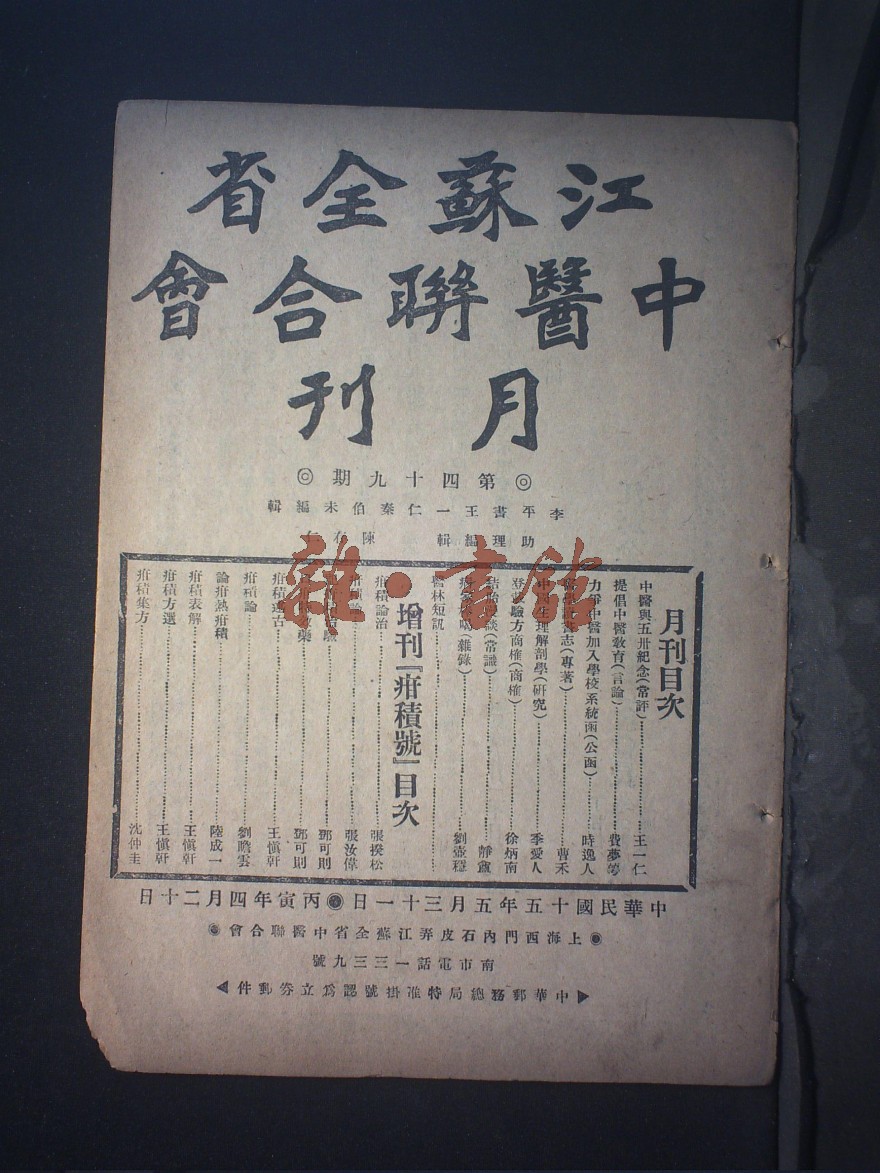 江蘇全省
中醫聯合會
月刊
◎第四十九期◎
李平書王一仁秦伯未編輯
助理編輯 陳
月刊目次
中醫與五卅紀念(常評)……王一仁
提倡中醫教育(言論)……費夢
力爭中醫加入學校系統函(公函)……時逸人
志(專著)……曹禾
理解剖學(研究)……季愛人
登 驗方商榷(商榷)……徐炳南
談(常識)……靜盦
(雜錄)……劉壺穩
醫林短訊
增刊『疳積號』目次
疳積論治……張揆松
論……張汝偉
驗……鄧可則
藥……鄧可則
疳積 古……王愼軒
疳積論……劉瞻雲
論疳熱疳積……陸成一
疳積表解……王愼軒
疳積方選……王愼軒
疳積集方……沈仲圭
中華民國十五年五月三十一日 丙寅年四月二十日
上海西門內石皮弄江蘇全省中醫聯合會
南市電話一三三九號
中華郵務總局特准掛號認爲立劵郵件
雜·書館